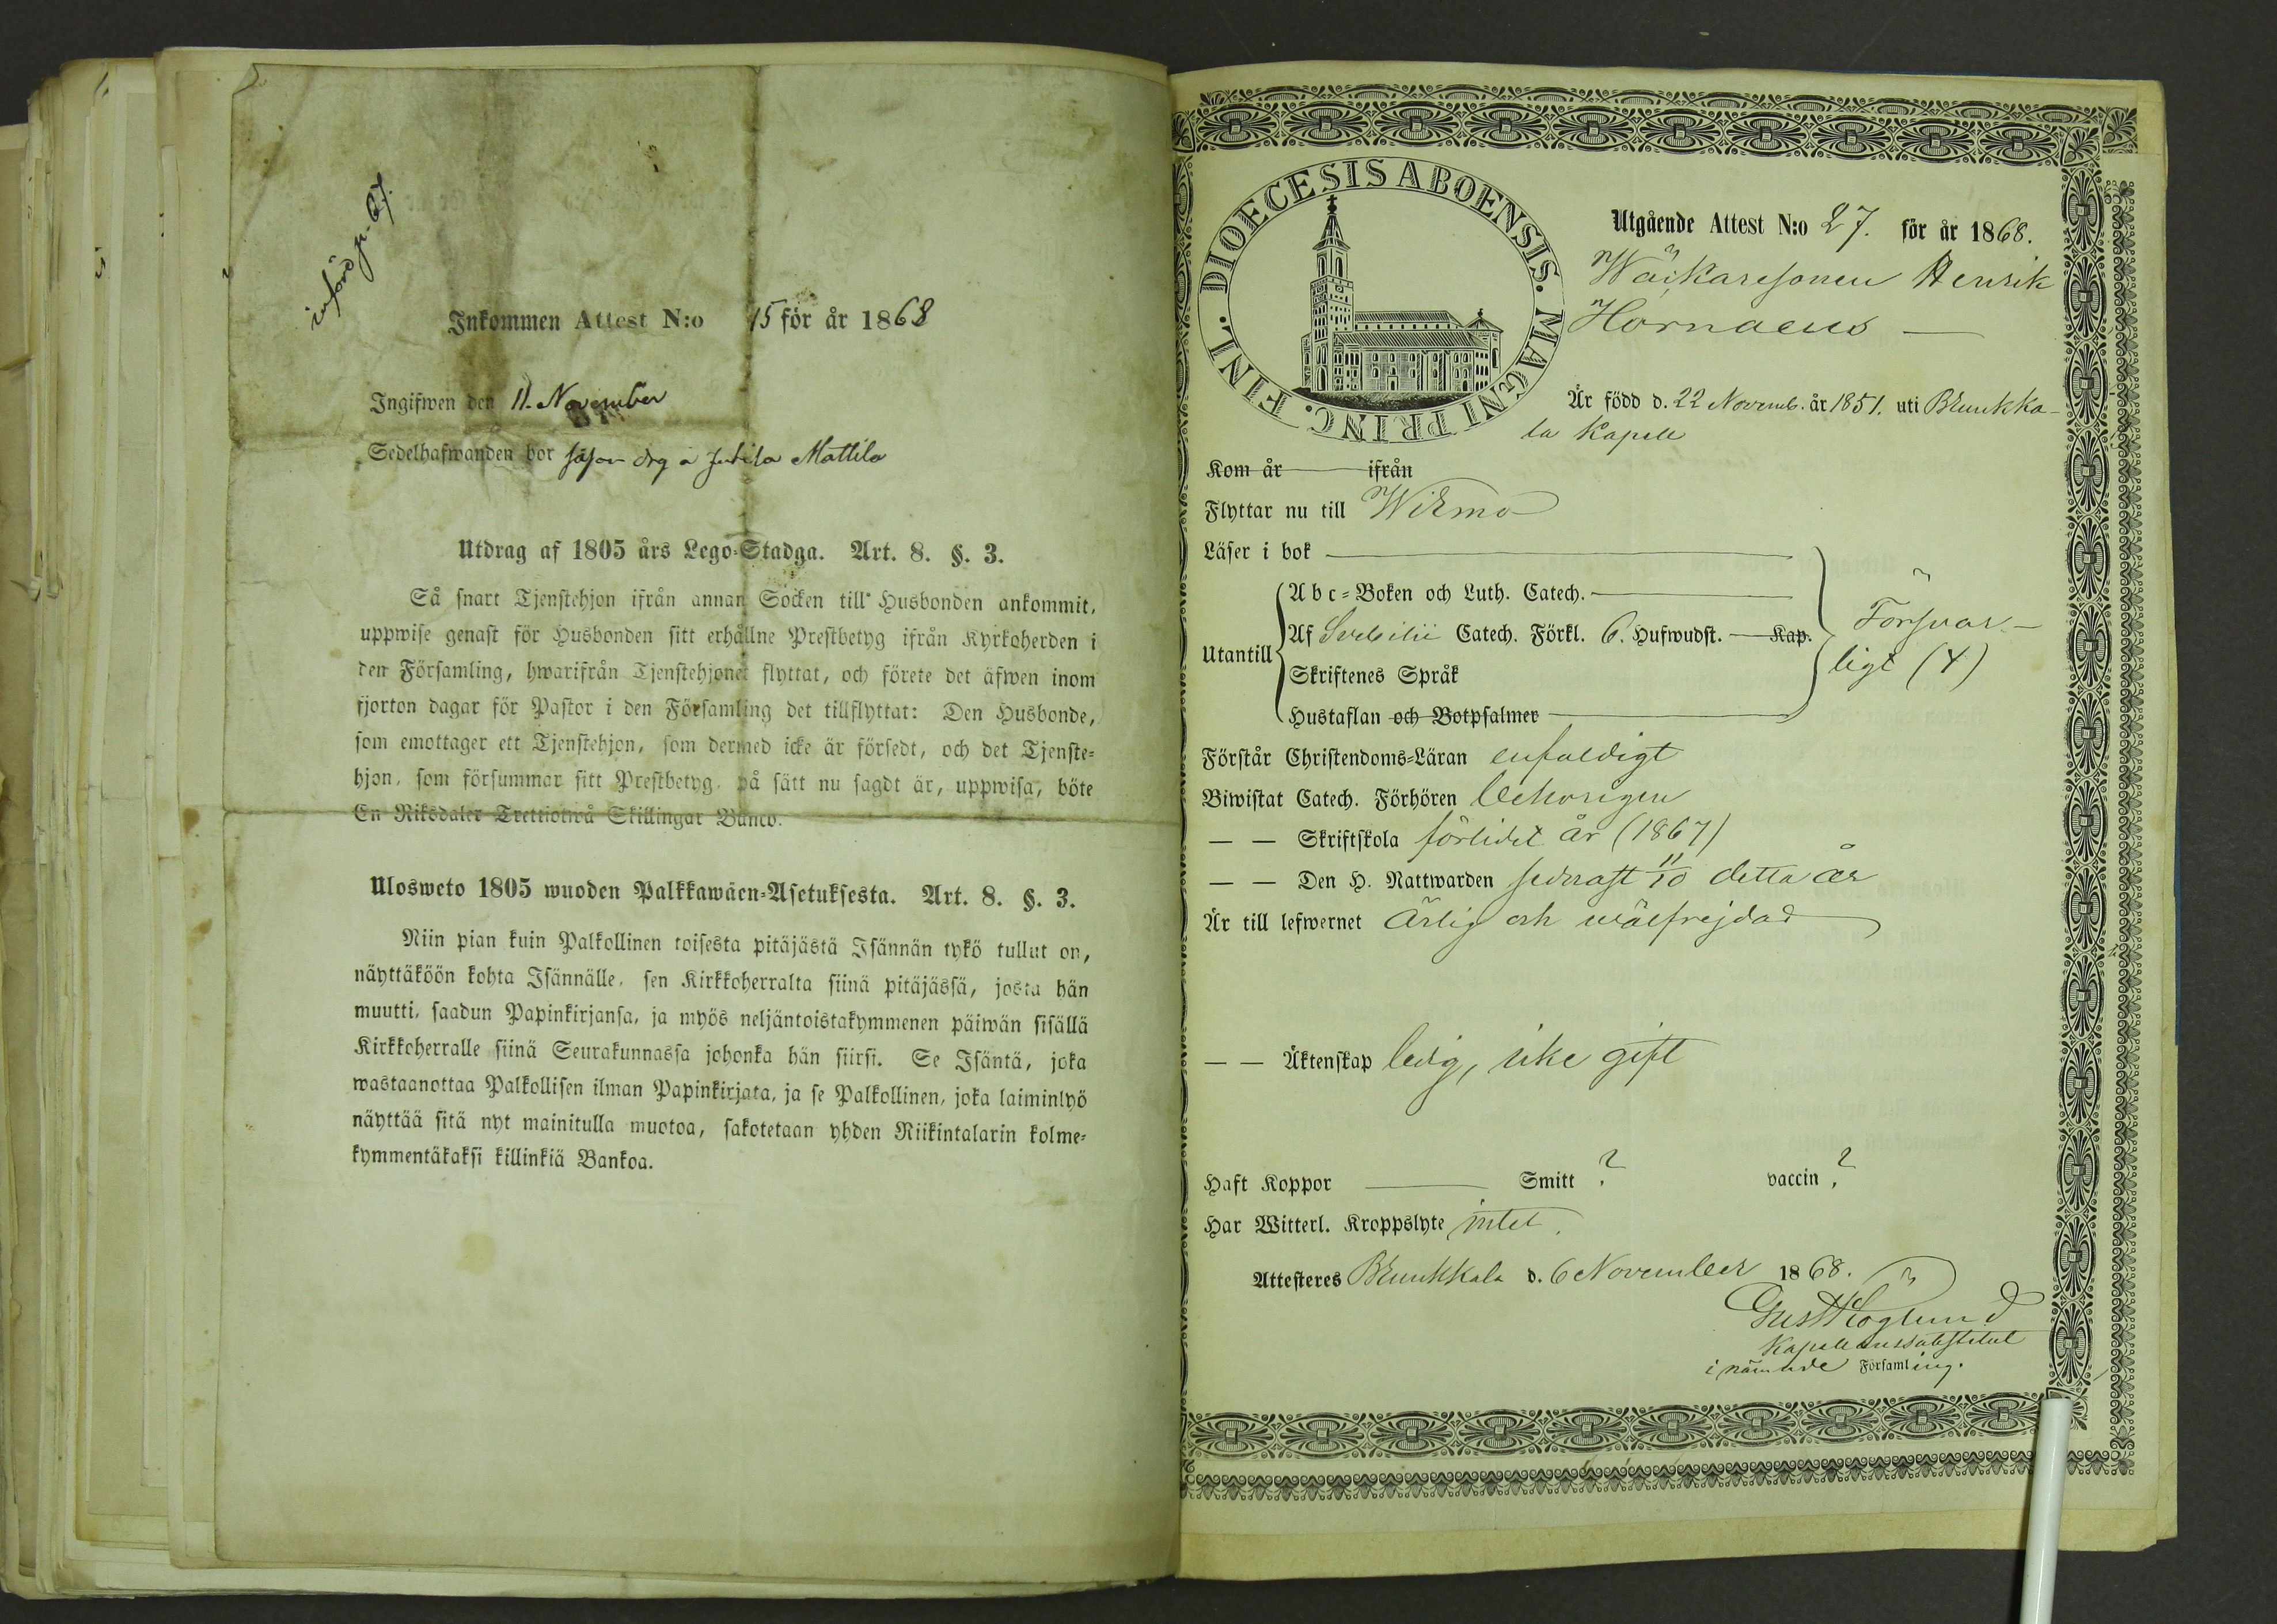 införd p. 67.
Inkommen Attest N:o 15 för år 1868
Ingifwen den 11. November
Sedelhafwanden bor såsom drg å Mattila
Utdrag af 1805 års Lego-Stadga. Art. 8. §. 3.
Så snart Tjenstehjon ifrån annan Socken till Husbonden ankommit,
uppwise genast för Husbonden sitt erhållne Prestbetyg ifrån Kyrkoherden i
den Församling, hwarifrån Tjenstehjonet flyttat, och förete det äfwen inom
fjorton dagar för Pastor i den Församling det tillflyttat: Den Husbonde,
som emottager ett Tjenstehjon, som dermed icke är försedt, och det Tjenste-
hjon, som försummar sitt Prestbetyg, på sätt nu sagdt är, uppwisa, böte
En Riksdaler Trettiotwå Skillingar Banco.
Ulosweto 1805 wuoden Palkkawäen-Asetuksesta. Art. 8. §. 3.
Niin pian kuin Palkollinen toisesta pitäjästä Isännän tykö tullut on,
näyttäköön kohta Isännälle, sen Kirkkoherralta siinä pitäjässä, josta hän
muutti, saadun Papinkirjansa, ja myös neljäntoistakymmenen päiwän sisällä
Kirkkoherralle siinä Seurakunnassa johonka hän siirsi. Se Isäntä, joka
wastaanottaa Palkollisen ilman Papinkirjata, ja se Palkollinen, joka laiminlyö
näyttää sitä nyt mainitulla muotoa, sakotetaan yhden Riikintalarin kolme-
kymmentäkaksi killinkiä Bankoa.
DIOECESIS ABOENSIS. MAGNI PRINC. FINL.
Utgående Attest N:o 27. för år 1868.
Wäckaresonen Henrik
Hornaeus
Är född d. 22 Novemb. år 1851. uti Brunkka-
la Kapell
Kom år ifrån
Flyttar nu till Wirmo
Läser i bok
Utantill
Abc-Boken och Luth. Catech.
Af Svebilii Catech. Förkl. 6. Hufwudst. Kap.
Skriftenes Språk
Hustaflan och Botpsalmer
Förswar-
ligt (4)
Förstår Christendoms-Läran enfaldigt
Biwistat Catech. Förhören behörigen
— — Skriftskola förlidet år (1867)
— — Den H. Nattwarden sednast 11/10 detta år
Är till lefwernet ärlig och wälfrejdad
— — Äktenskap ledig, icke gift
Haft Koppor Smitt ? vaccin ?
Har Witterl. Kroppslyte intet.
Attesteres Brunkkala d. 6 November 1868.
Gust Höglund
Kapellanssubstitut
i nämnde Församling.